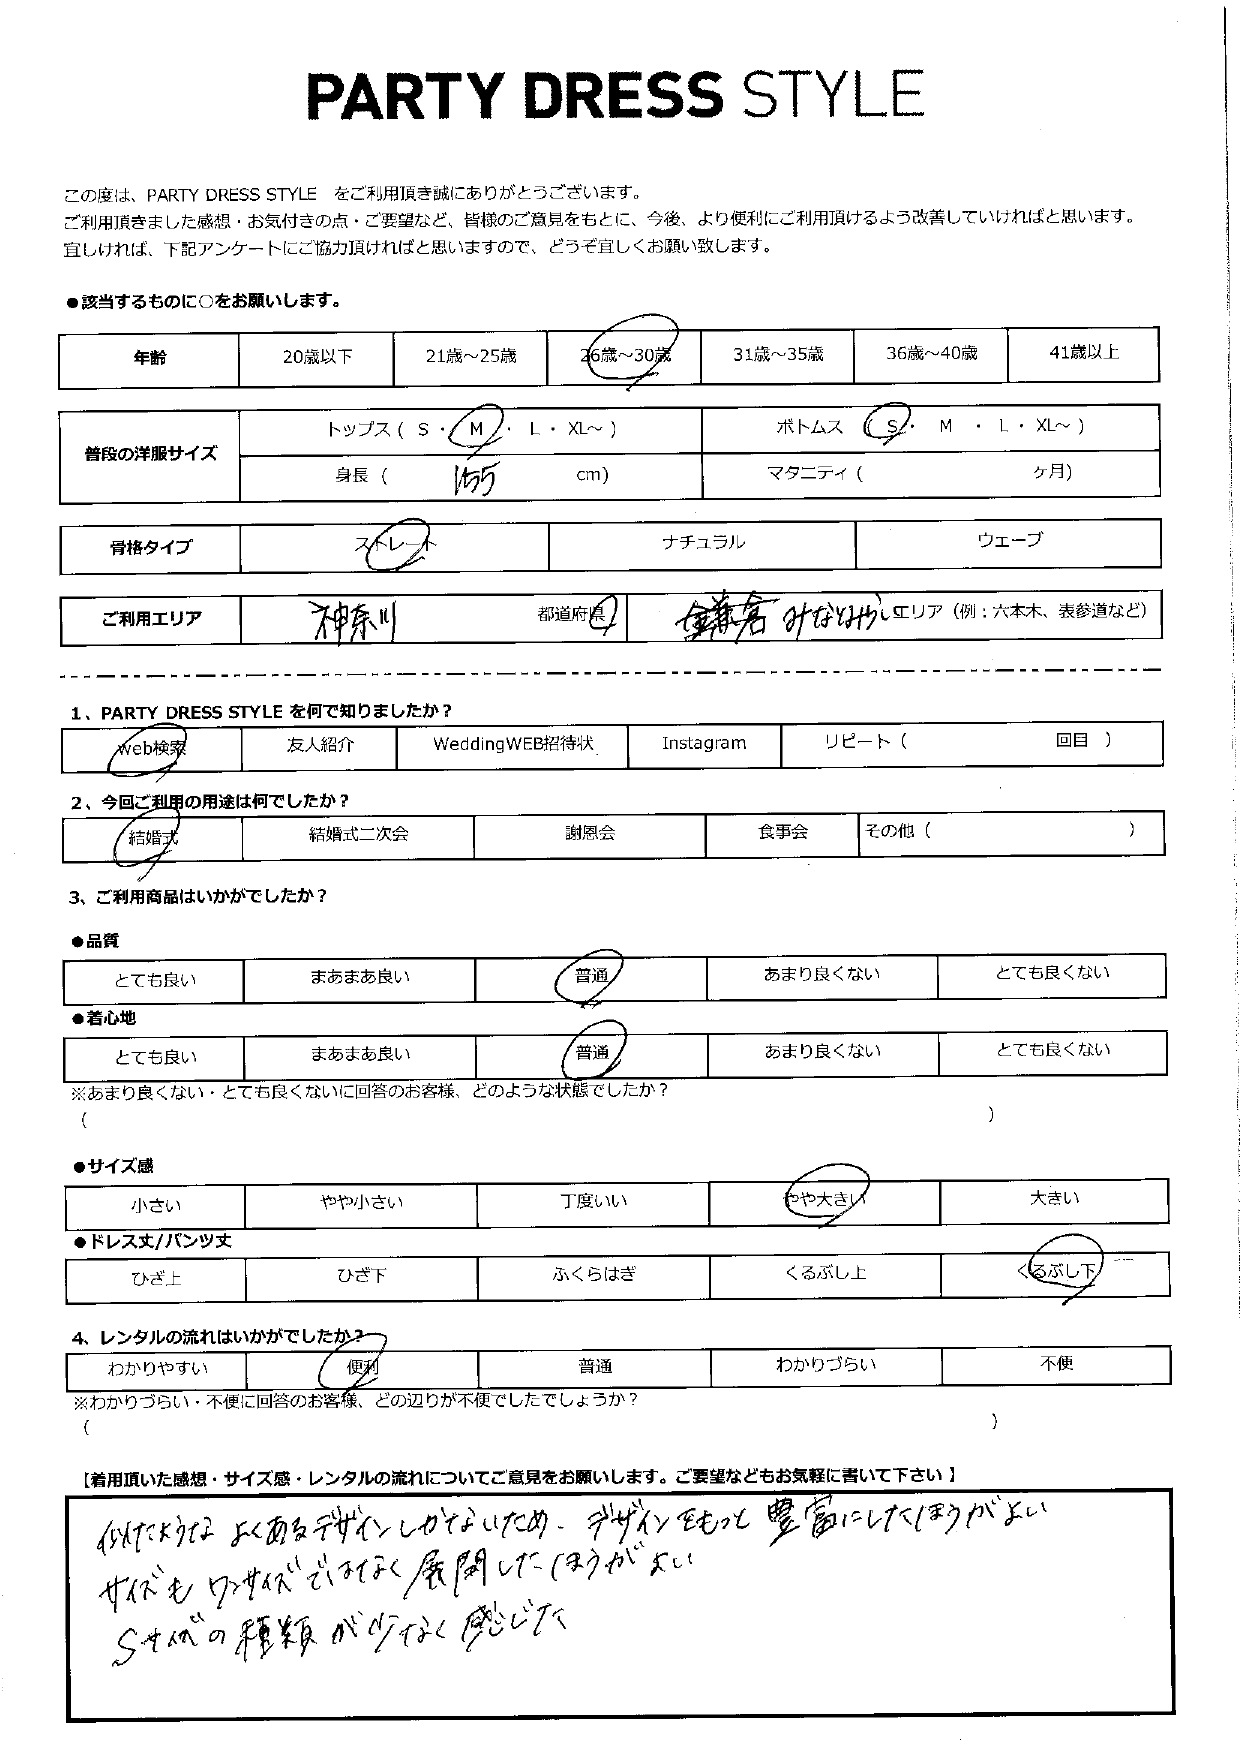 PARTY DRESS STYLE
この度は、PARTY DRESS STYLE をご利用頂き誠にありがとうございます。
ご利用頂きました感想・お気付きの点・ご要望など、皆様のご意見をもとに、今後、より便利にご利用頂けるよう改善していければと思います。
宜しければ、下記アンケートにご協力頂ければと思いますので、どうぞ宜しくお願い致します。
●該当するものに○をお願いします。
年齢 20歳以下 21歳～25歳 26歳～30歳 31歳～35歳 36歳～40歳 41歳以上
普段の洋服サイズ トップス ( S ・ M ・ L ・ XL～ ) ボトムス ( S ・ M ・ L ・ XL～ )
身長 ( 155 cm) マタニティ ( ヶ月)
骨格タイプ ストレート ナチュラル ウェーブ
ご利用エリア 神奈川 都道府県 鎌倉 みなとみらい エリア（例：六本木、表参道など）
1、PARTY DRESS STYLE を何で知りましたか？
web検索 友人紹介 WeddingWEB招待状 Instagram リピート ( 回目 )
2、今回ご利用の用途は何でしたか？
結婚式 結婚式二次会 謝恩会 食事会 その他 ( )
3、ご利用商品はいかがでしたか？
●品質
とても良い まあまあ良い 普通 あまり良くない とても良くない
●着心地
とても良い まあまあ良い 普通 あまり良くない とても良くない
※あまり良くない・とても良くないに回答のお客様、どのような状態でしたか？
( )
●サイズ感
小さい やや小さい 丁度いい やや大きい 大きい
●ドレス丈/パンツ丈
ひざ上 ひざ下 ふくらはぎ くるぶし上 くるぶし下
4、レンタルの流れはいかがでしたか？
わかりやすい 便利 普通 わかりづらい 不便
※わかりづらい・不便に回答のお客様、どの辺りが不便でしたでしょうか？
( )
【着用頂いた感想・サイズ感・レンタルの流れについてご意見をお願いします。ご要望などもお気軽に書いて下さい】
似たような よくあるデザインしかないため、デザインをもっと豊富にしたほうがよい
サイズも ワンサイズではなく展開したほうがよい
Sサイズの種類が少なく感じた